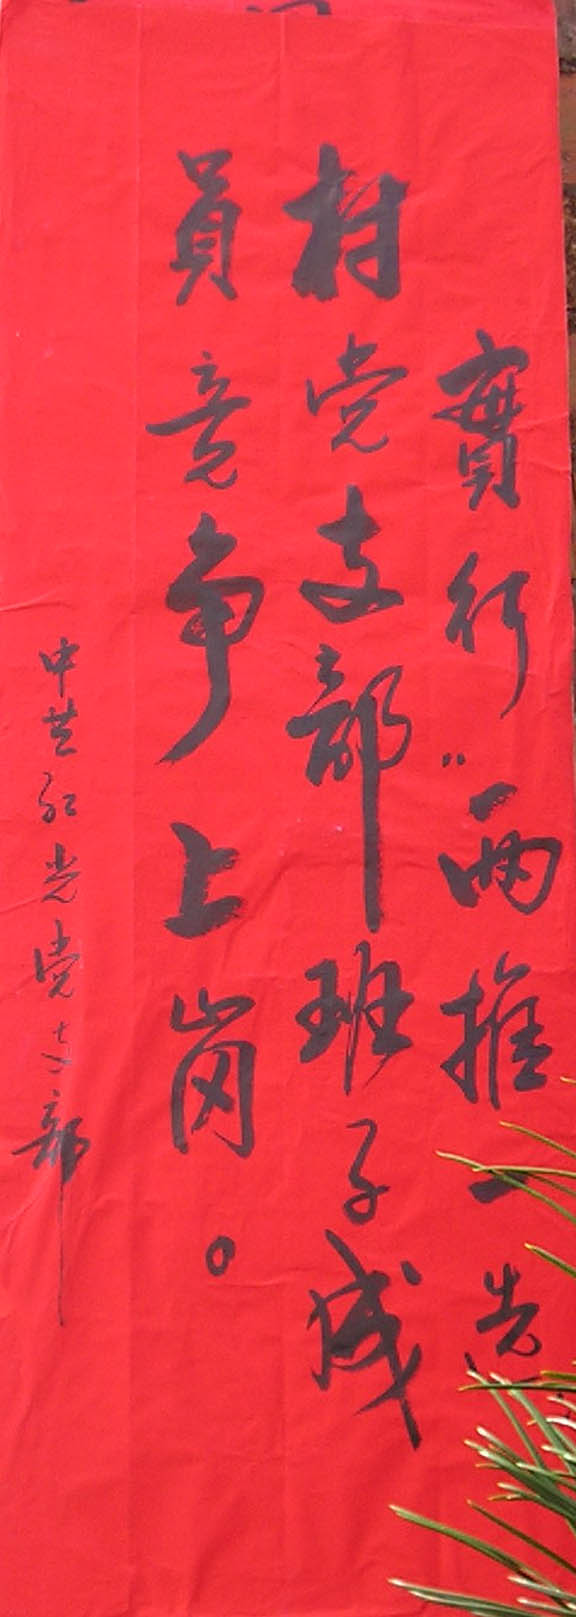 實行“两推一选
村党支部班子成
員竞争上岗。
中共红光党支部